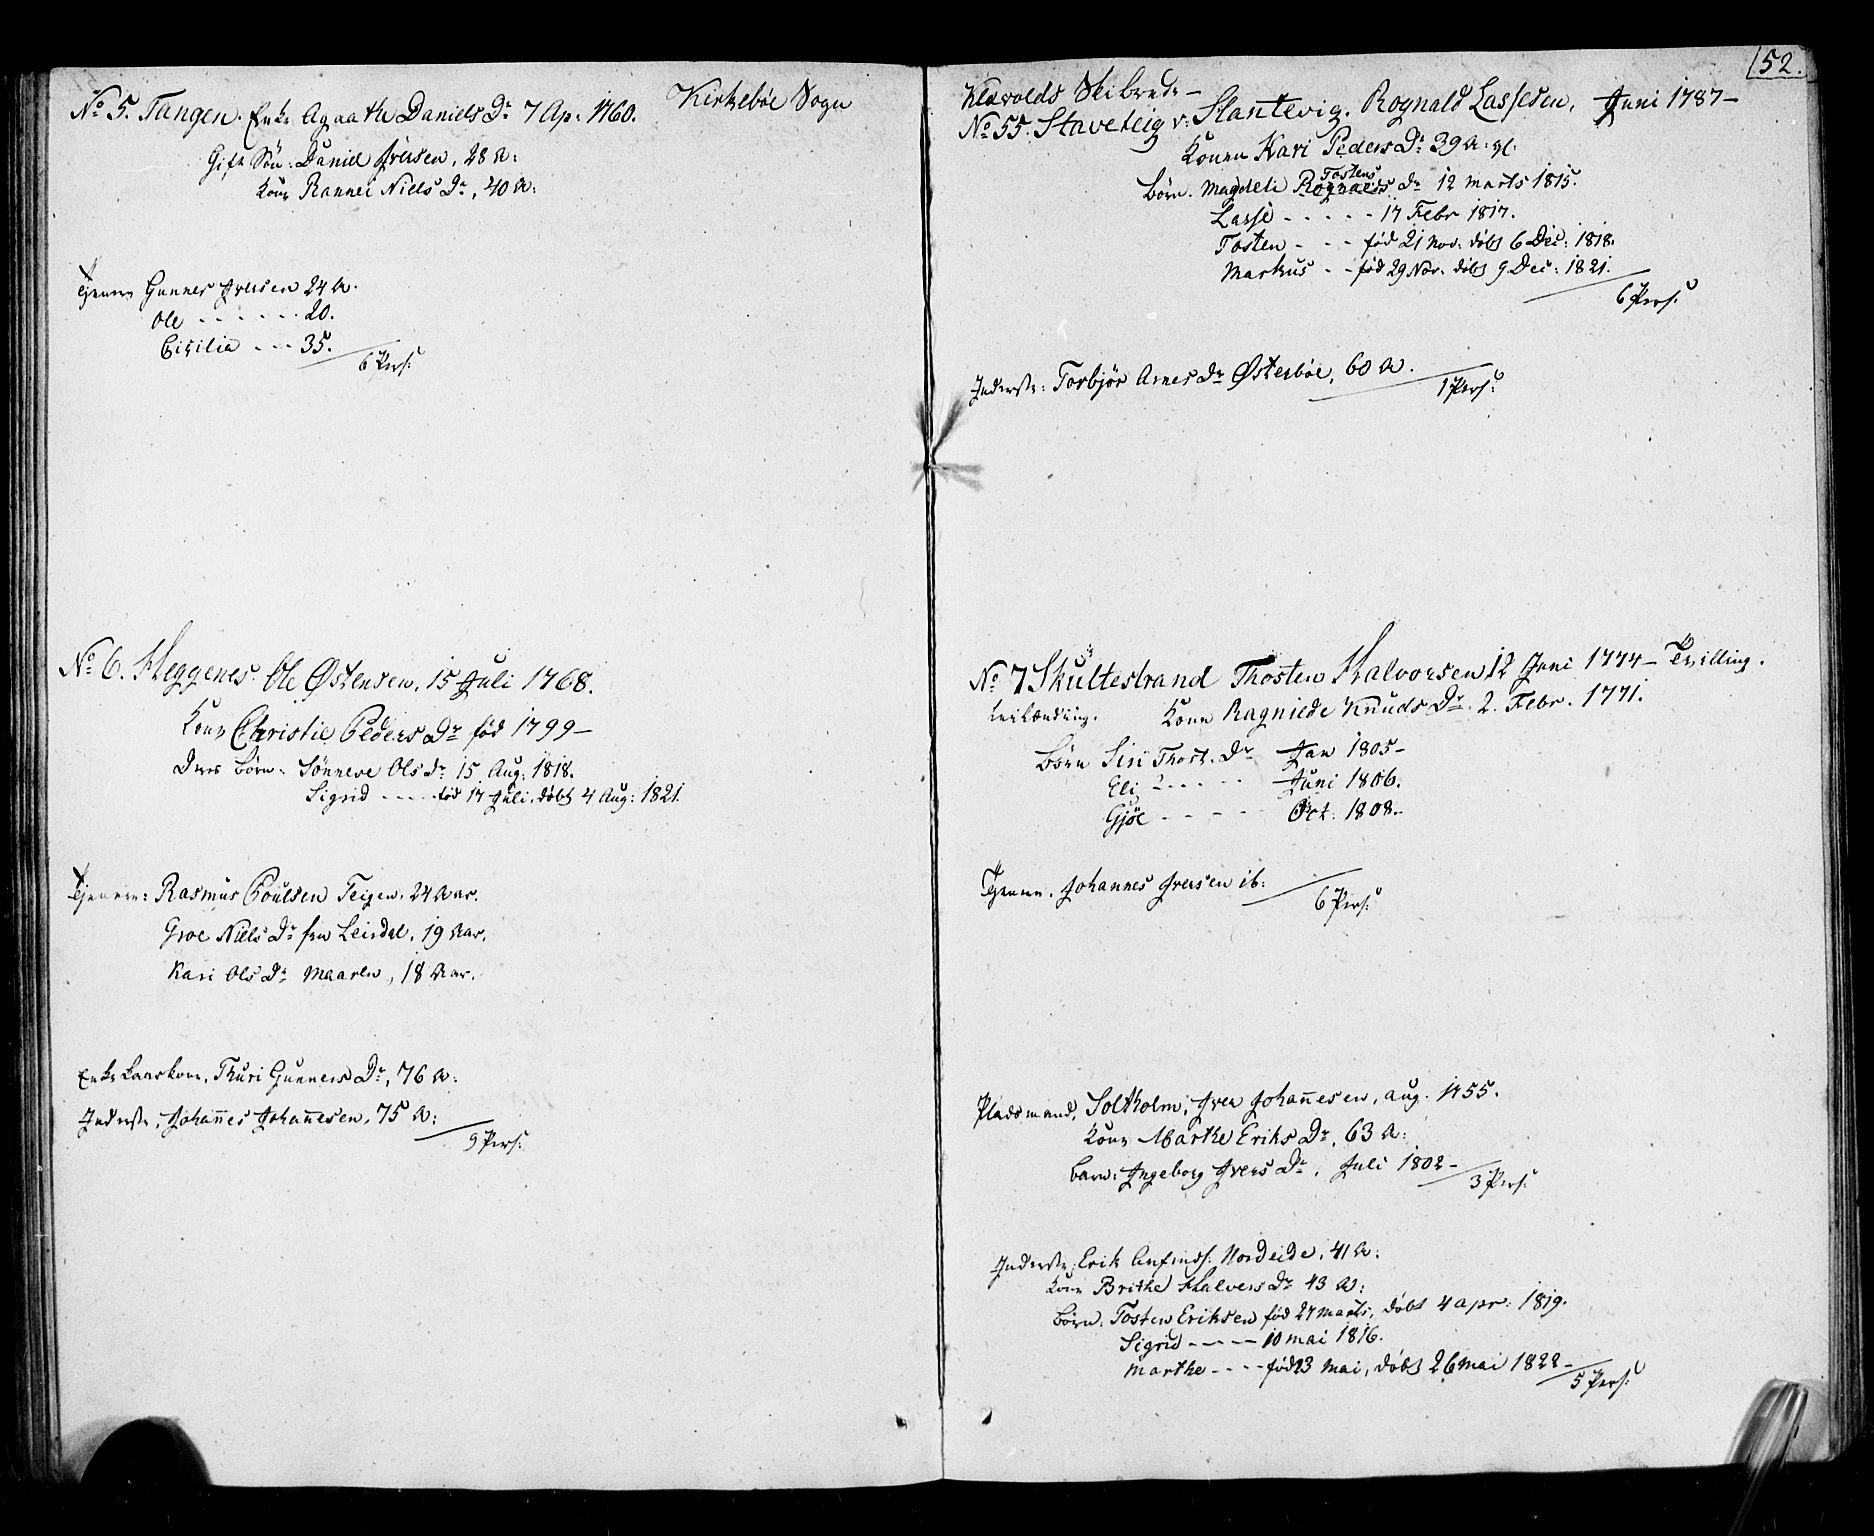 No 5. Tangen. Enke Agaathe Daniels Dr 7 Ap: 1760. Kirkebøe Sogn
Gift Søn: Daniel Iversen, 28 A:
Kone Rannei Niels Dr, 40 A:
Tjenere Gunner Iversen 24 A.
Ole - - - - - 20.
Cicilia - - - 35.
6 Pers:
No 6. Heggenes. Ole Østensen, 15 Juli 1768.
Kone Christie Peders Dr fød 1799 -
Deres Børn: Sønneve Ols Dr 15 Aug: 1818.
Sigrid - - - - fød 17 Juli, døbt 4 Aug: 1821.
Tjenere: Rasmus Poulsen Teigen, 24 Aar.
Groe Niels Dr fra Leirdal, 19 Aar.
Kari Ols Dr Maaren, 18 Aar.
Enke Thuri Gunners Dr, 76 A:
Inderste, Johannes Johannesen, 75 A:
9 Pers:
52.
Klævolds Skibrede -
No 55. Staveteig v: Slantevig. Rognald Lassesen, Juni 1787 -
Konen Kari Peders Dr 39 A: gl.
Tostens
Børn. Magdeli Rognalds Dr 12 Marts 1815.
Lasse - - - - - 17 Febr 1817.
Tosten - - - fød 21 Nov. døbt 6 Dec: 1818.
Markus - - fød 29 Nov. døbt 9 Dec: 1821.
6 Pers:
Inderste: Torbjør Arnes Dr Østerbøe, 60 A.
1 Pers:
No 7 Skultestrand Thosten Halvorsen 12 Juni 1774 - Tvilling.
Leilænding. Kone Ragnilde Knuds Dr. 2. Febr. 1771.
Børn Siri Thost. Dr Jan 1805 -
Eli - - - - Juni 1806.
Gjøe - - - - Oct: 1808 -
Tjenere. Johannes Iversen 16:
6 Pers:
Pladsmand, Soltholm, Iver Johannesen, aug. 1755.
Kone Marthe Eriks Dr, 63 A:
Barn: Ingeborg Ivers Dr, Juli 1802 -
3 Pers:
Inderste: Erik Anfinds: Nordeide, 41 A:
Kone Brithe Halvors Dr 43 A:
Børn: Tosten Eriksen fød 27 Marts, døbt 4 apr: 1819.
Sigrid - - - - 10 Mai 1816.
Marthe - - - - fød 23 Mai, døbt 26 Mai 1822 -
5 Pers: